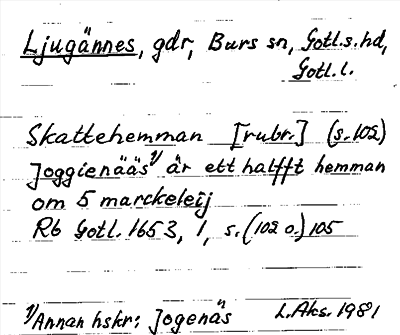 Ljugännes, gdr, Burs sn, Gotl.s. hd,
Gotl. l.
Skattehemman [rubr.] (s. 102)
Joggienääs 1) är ett halfft hemman
om 5 marckeleij
Rb Gotl. 1653, 1, s. (102 o.) 105
1) Annan hskr: Jogenäs L. Aks. 1981